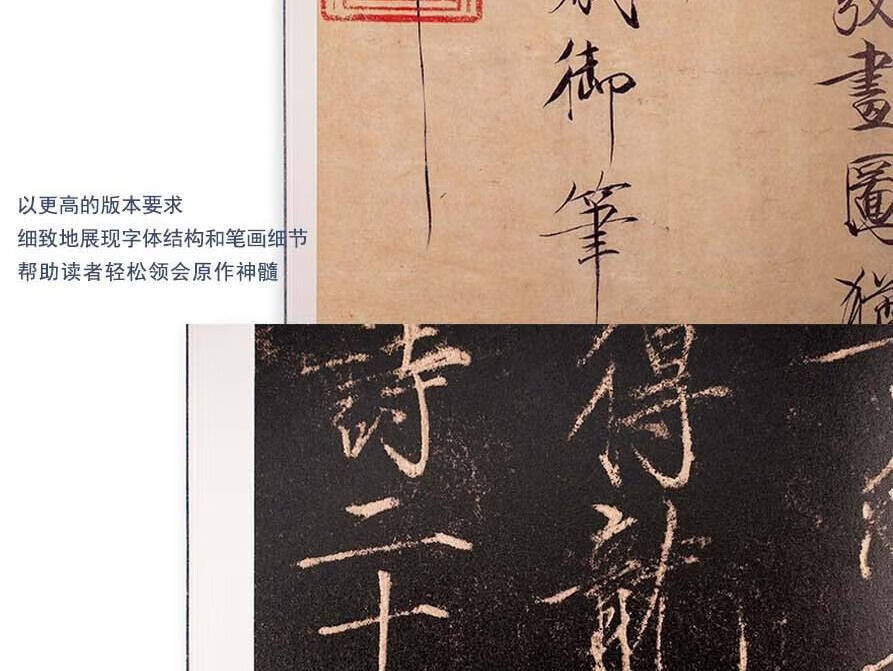 以更高的版本要求
细致地展现字体结构和笔画细节
帮助读者轻松领会原作神髓
畫圖
御筆
得龍
詩二十